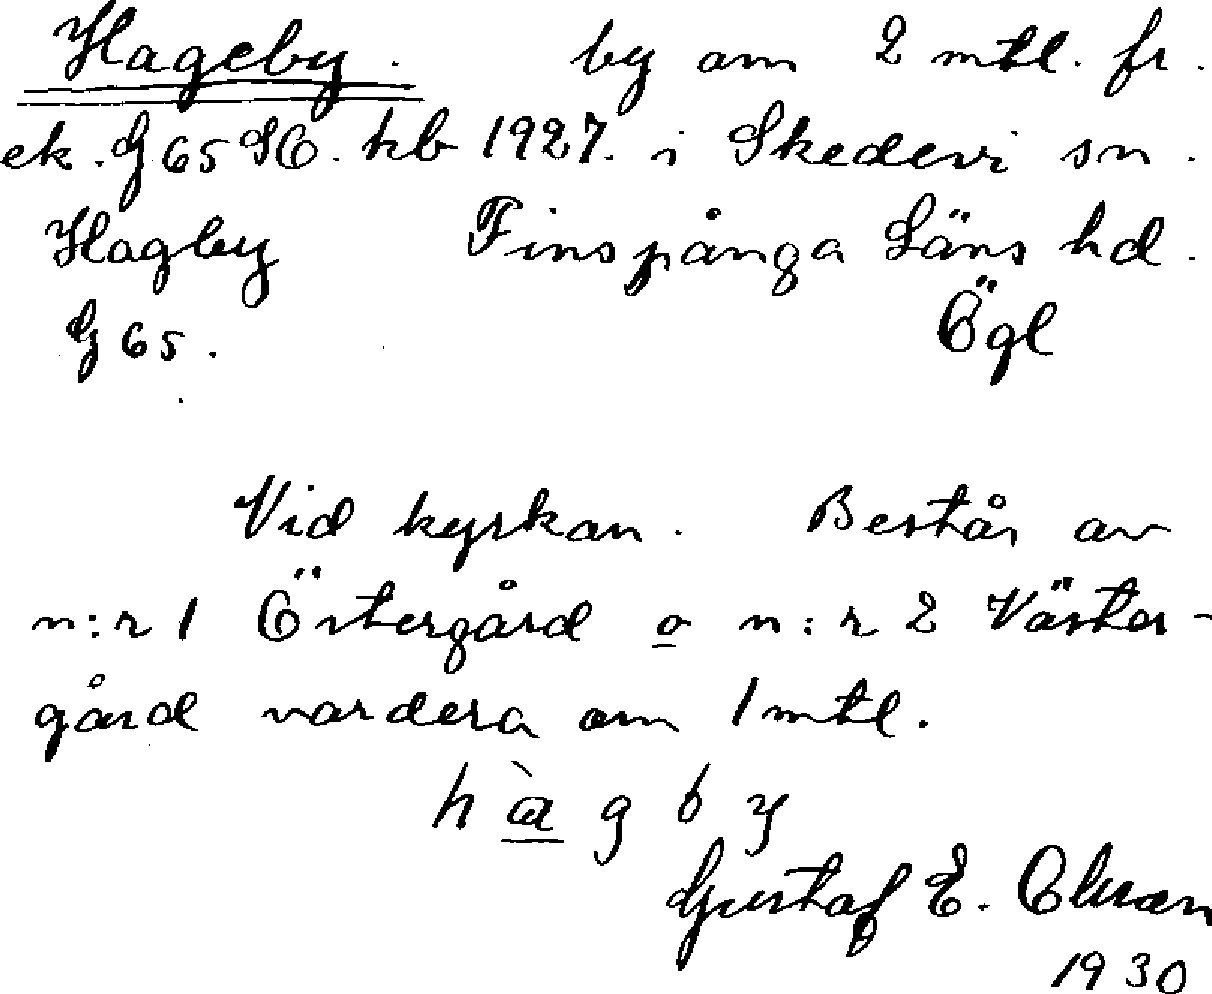 Hageby. by om 2 mtl. fr.
ek. G 65 SO. hb 1927. i Skedevi sn.
Hagby Finspånga Läns hd.
G 65. Ögl
Vid kyrkan. Består av
n:r 1 Östergård o n:r 2 Väster-
gård vardera om 1 mtl.
h à g b y
Gustaf E.
1930